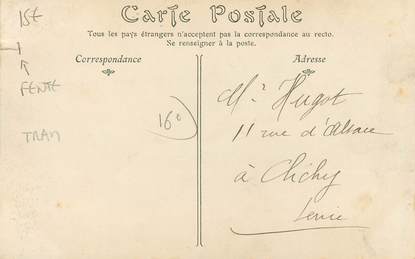 15€
Carte Postale
Tous les pays étrangers n'acceptent pas la correspondance au recto.
Se renseigner à la poste.
Correspondance
Adresse
FENTE
TRAM
16€
Mr Hugot
11 rue d'Alsace
à Clichy